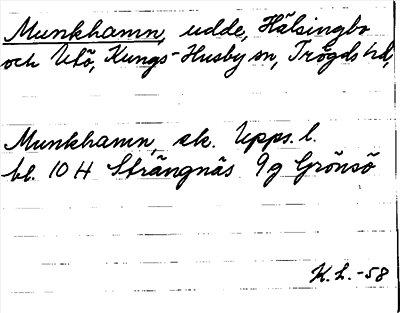 Munkhamn, udde, Hälsingbo
och Utö, Kungs-Husby sn, Trögds hd,
Munkhamn, ek. Upps. l.
bl. 10 H Strängnäs 9g Grönsö
K.L.-58